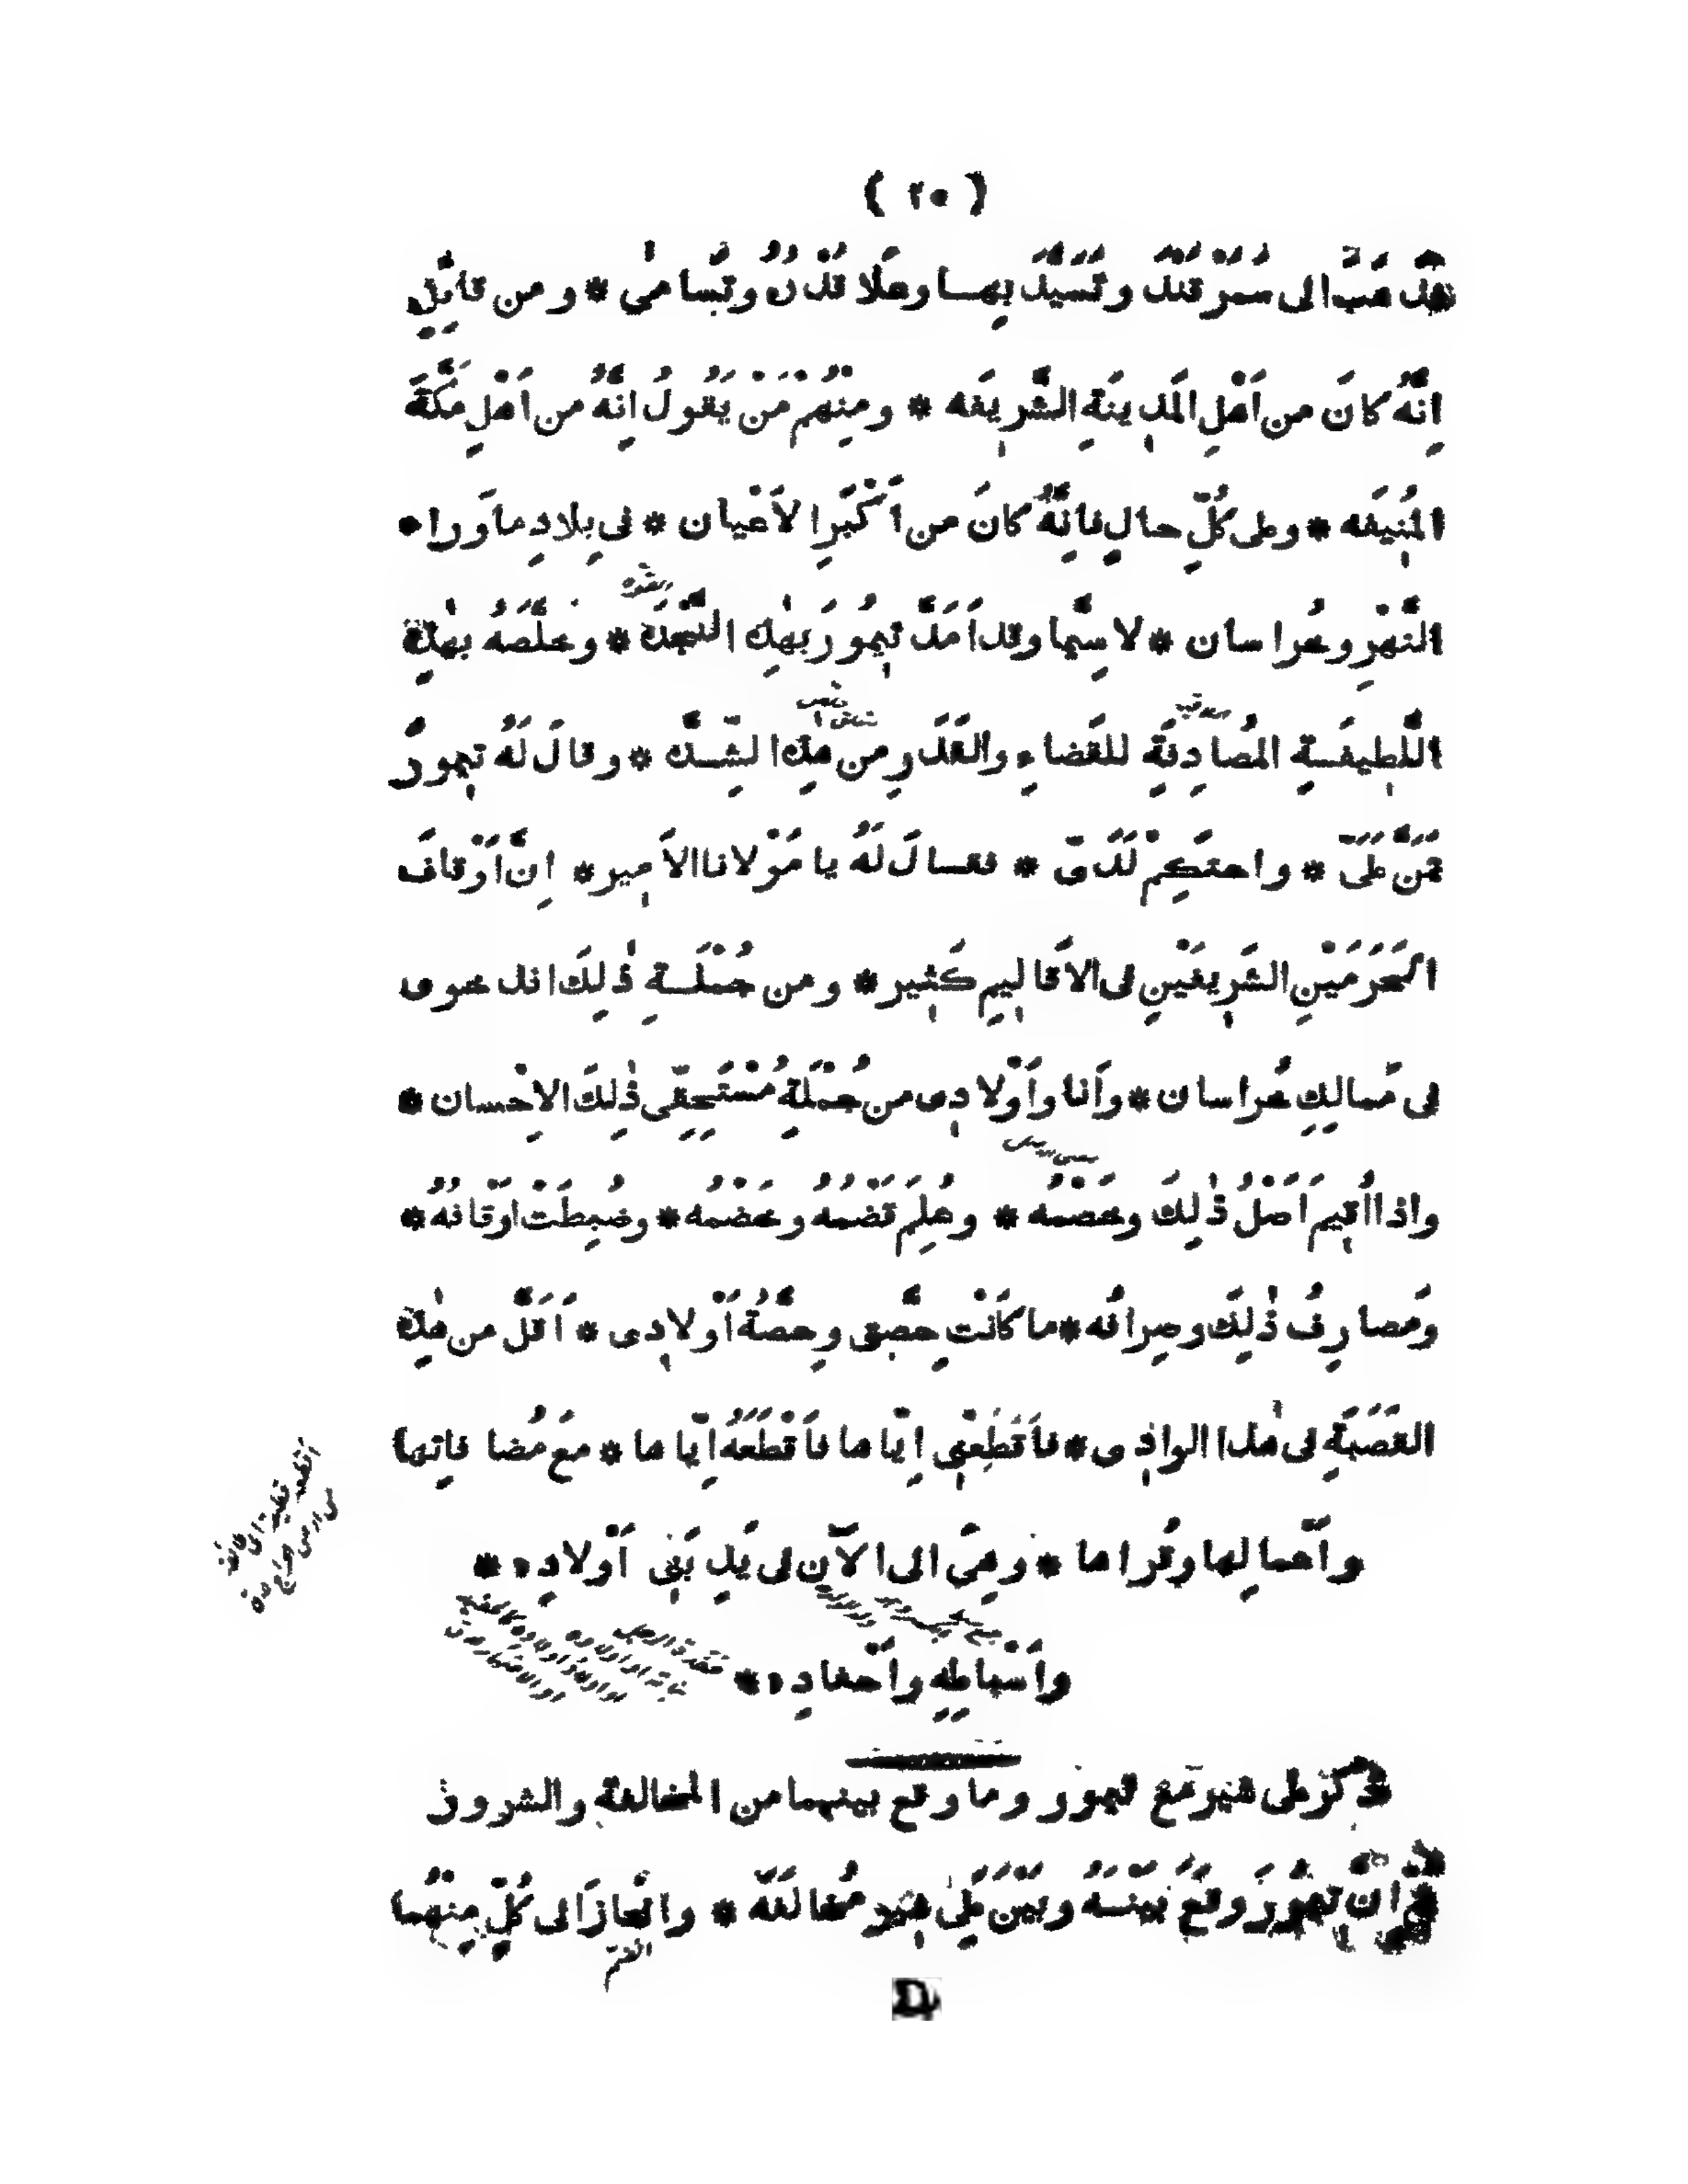 ( ٢٥ )
فذهب الى سَمَرْقَنْدَ وتَسَيَّدَ بِهـا وعَلا قَدْرُهُ وتَسامى * ومن قائِلٍ
اِنَّهُ كانَ من اَهْلِ المَدِينَةِ الشَّرِيفَه * ومِنْهُمْ مَنْ يَقُولُ اِنَّهُ من اَهْلِ مَكَّةَ
المُنِيفَه * وعلى كُلِّ حالٍ فَاِنَّهُ كانَ من اَكْبَرِ الاَعْيان * فى بِلادِ ماوَراء
النَّهْرِ وخُراسان * لا سِيَّما وقد اَمَدَّ تِيمُورَ بِهٰذِهِ النَّجْدَة * وخَلَّصَهُ بِهٰذِهِ
اللَّطِيفَةِ المُصادِفَةِ للقَضاءِ والقَدَرِ من هٰذِهِ الشِّدَّة * وقالَ لَهُ تِيمُورُ
تَمَنَّ عَلَىَّ * واحتَكِمْ لَدَىَّ * فقـالَ لَهُ يا مَوْلانا الاَمِير * اِنَّ اَوْقافَ
الحَرَمَيْنِ الشَرِيفَيْنِ فى الاَقالِيمِ كَثِير * ومن جُمْلَةِ ذٰلِكَ اندخوى
فى مَمالِكِ خُراسان * وَاَنا واَوْلادِى من جُمْلَةِ مُسْتَحِقِّى ذٰلِكَ الاِحْسان *
واذا اُقِيمَ اَصْلُ ذٰلِكَ وخَصْمُه * وعُلِمَ قَضْمُهُ وخَضْمُه * وضُبِطَتْ اَوْقافُهُ *
ومَصارِفُ ذٰلِكَ وصِرافُه * ما كانَتْ حِصَّتِى وحِصَّةُ اَوْلادِى * اَقَلَّ من هٰذِهِ
القَصَبَةِ فى هٰذا الوادِى * فاَقْطِعْنِى اِيّاها فاَقْطَعَهُ اِيّاها * مع مُضافاتِها
واَعْمالِها وقُراها * وهِىَ الى الآنَ فى يَدِ بَنِى اَوْلادِه *
واَسْباطِهِ واَحْفادِه *
ذكر على شير مع تيمور وما وقع بينهما من المخالفة والشرور
ثم اِنَّ تِيمُورَ وقَعَ بَيْنَهُ وبَيْنَ عَلِى شِير مُخالَفَه * وانْحازَ اِلى كُلٍّ مِنْهُما